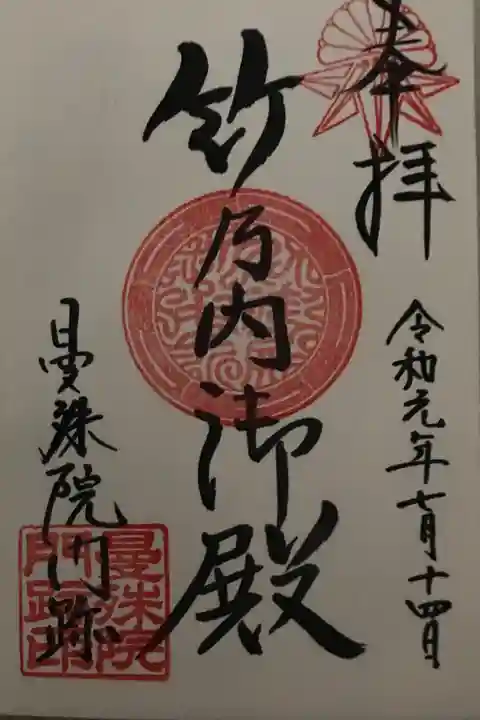 奉拝
令和元年七月十四日
竹乃内御殿
曼殊院門跡
曼殊院
門跡印